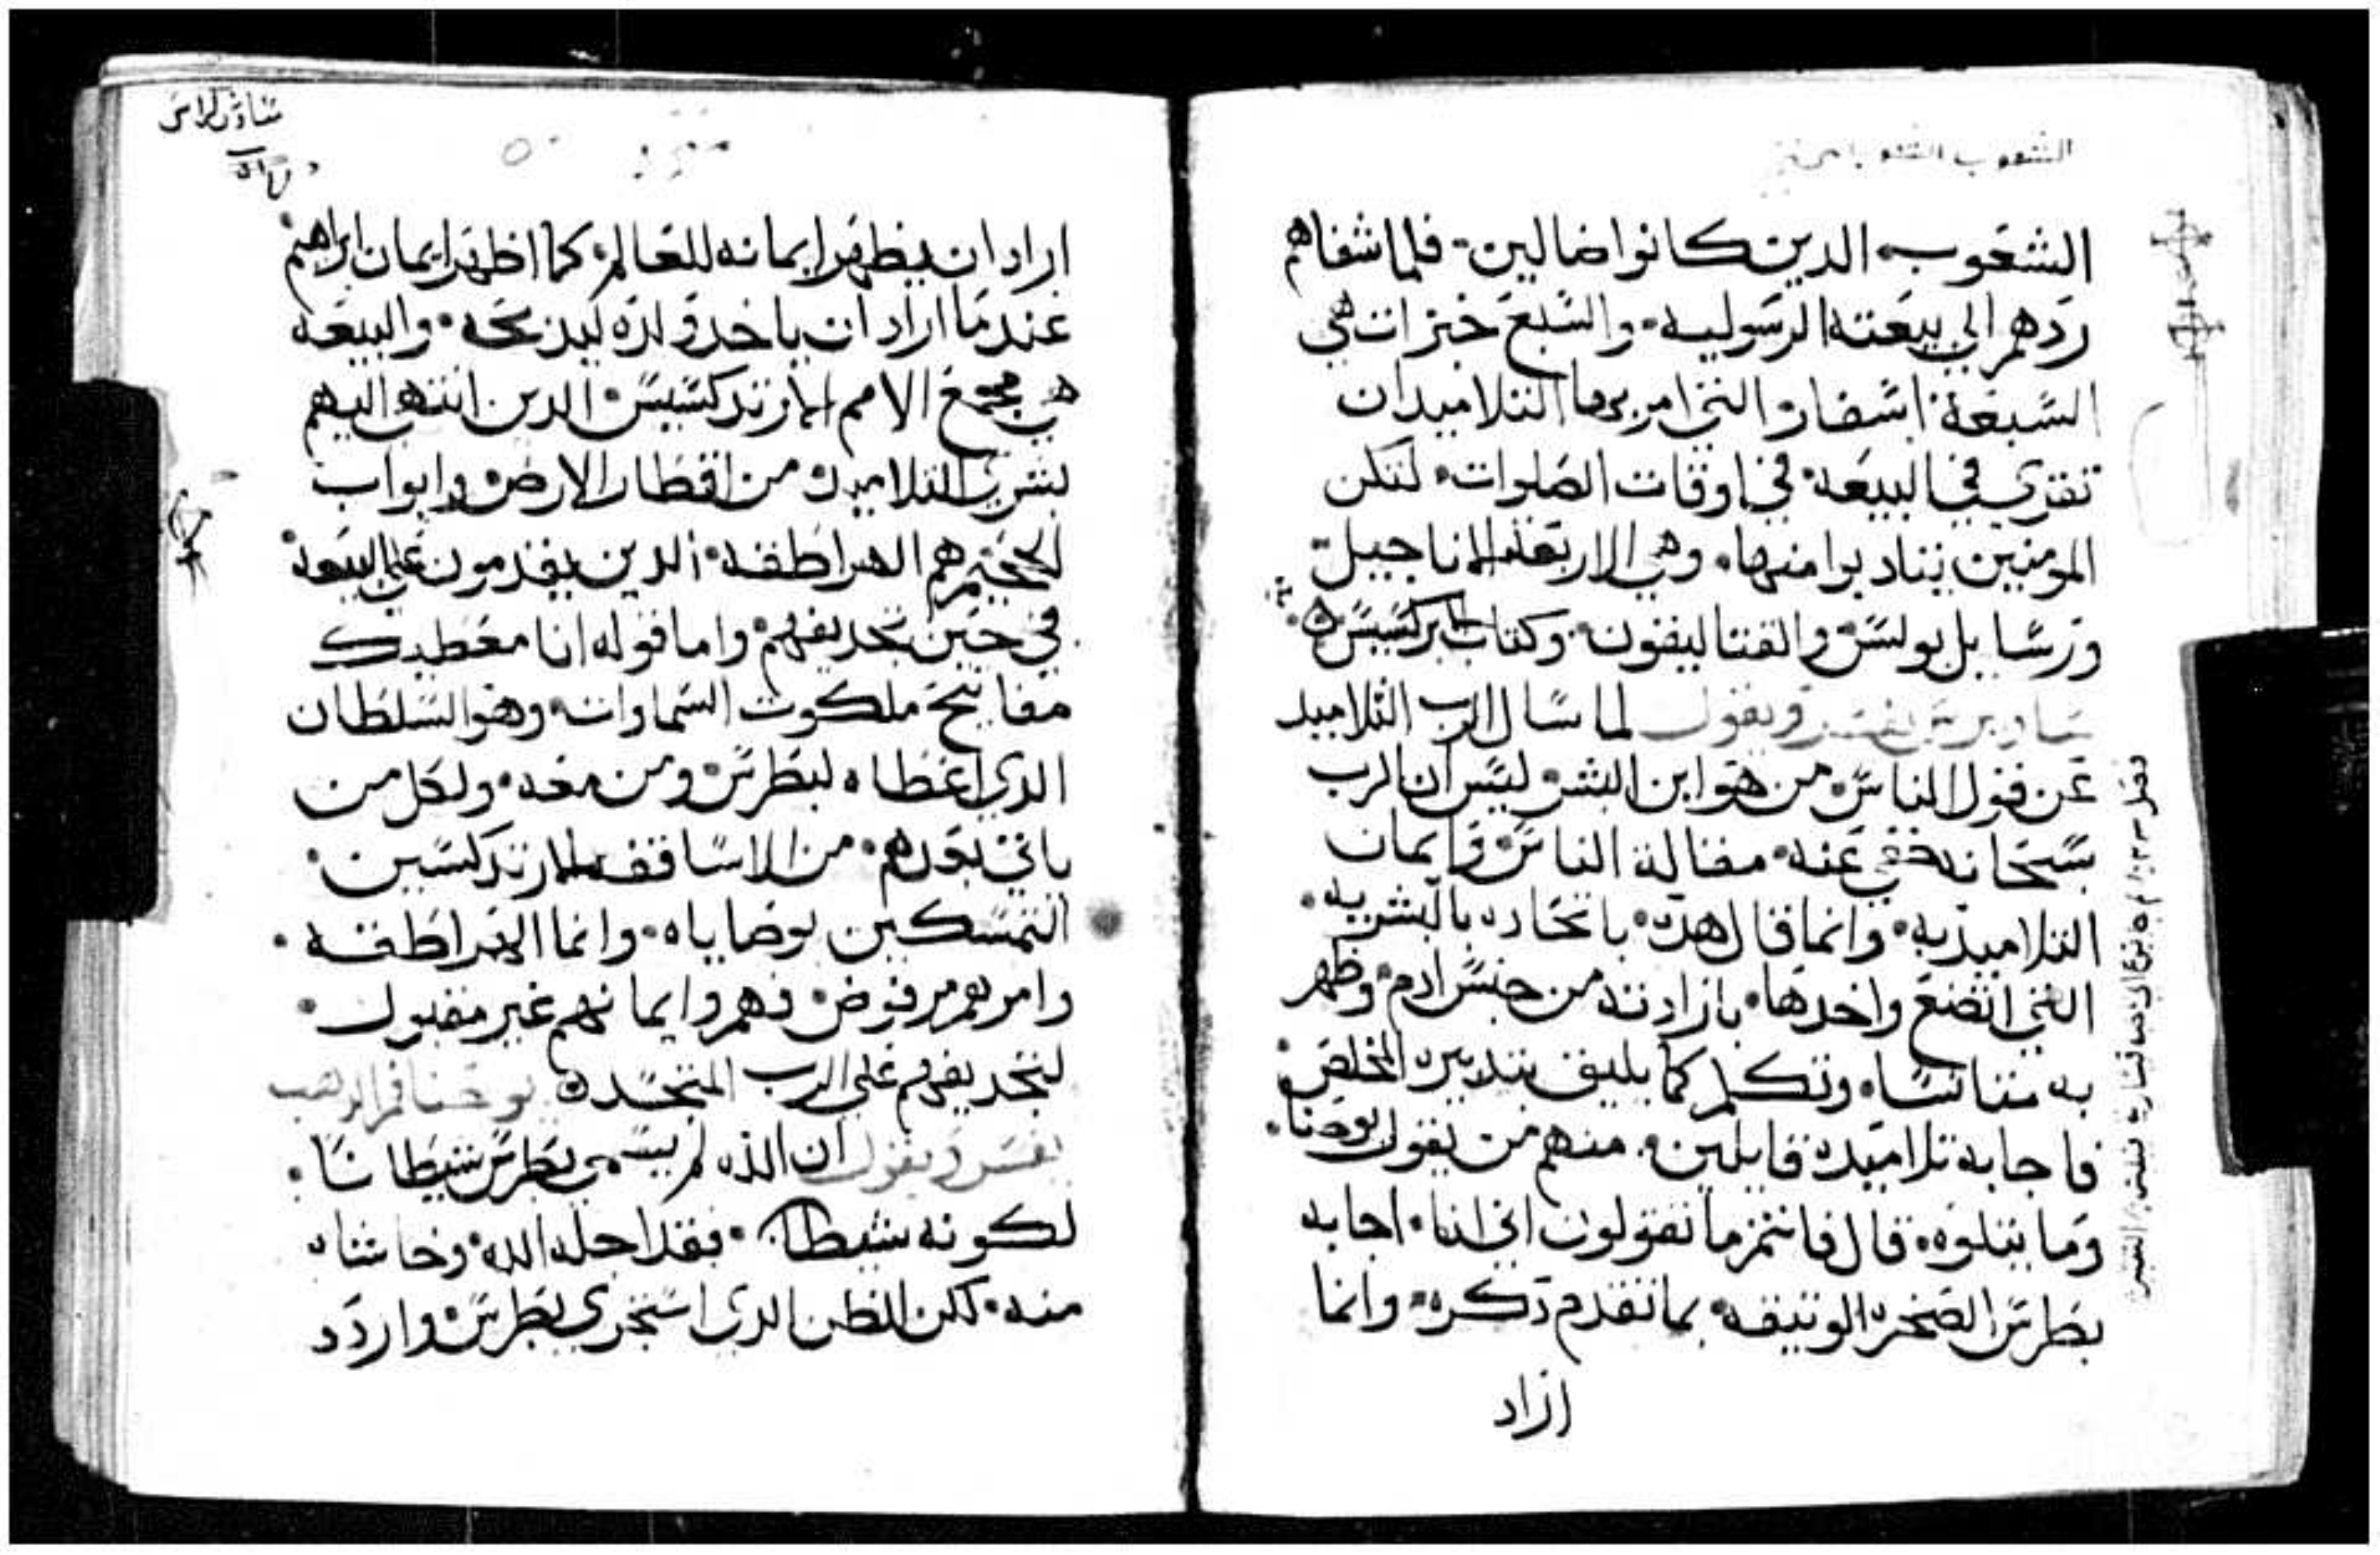 الشعوب الذين كانوا ضالين فلما شفاهم
ردهم الي بيعته الرسوليه والسبع خبزات هي
السبعة اسفار التي امر بها التلاميد ان
تقري في البيعه في اوقات الصلوات لتكن
المومنين يتادبوا منها وهي الاربعه اناجيل
ورسايل بولس والقتاليقون وكتاب الابركسيس
ساويرس يفسر ويقول لما سال الرب التلاميد
عن قول الناس من هو ابن البشر ليس ان الرب
سبحانه خفي عنه مقالة الناس وايمان
التلاميذ به وانما قال هدا باتحاده بالبشريه
التي اتضع واخدها بارادته من جنس ادم وظهر
به متانسا وتكلم كما يليق بتدبيره المخلص
فاجابه تلاميده قايلين منهم من يقول يوحنا
وما يتلوه قال فانتم ما تقولون اني انا اجابه
بطرس الصخره الوتيقه بما تقدم دكره وانما
اراد
اراد ان يظهر ايمانه للعالم كما اظهر ايمان ابراهيم
عندما اراد ان ياخد ولده ليدبحه والبيعه
هي مجمع الامم الارتدكسيس الدين انتهي اليهم
بشري التلاميد من اقطار الارض وابواب
الجحيم هم الهراطقه الدين يقدمون علي البيعه
في حين تجديفهم واما قوله انا معطيك
مفاتيح ملكوت السماوات وهو السلطان
الدي اعطاه لبطرس ومن معه ولكل من
ياتي بعدهم من الاساقفه الارتدكسين
المتمسكين بوصاياه وانما الهراطقه
وامرهم مرفوض هم وايمانهم غير مقبول
لتجديفهم علي الرب المتجسد يوحنا فم الدهب
يفسر ويقول ان الله لم يسمي بطرس شيطانا
لكونه شيطان فقد اجله الله وحاشاه
منه لكن الظن الدي استجري بطرس واردد